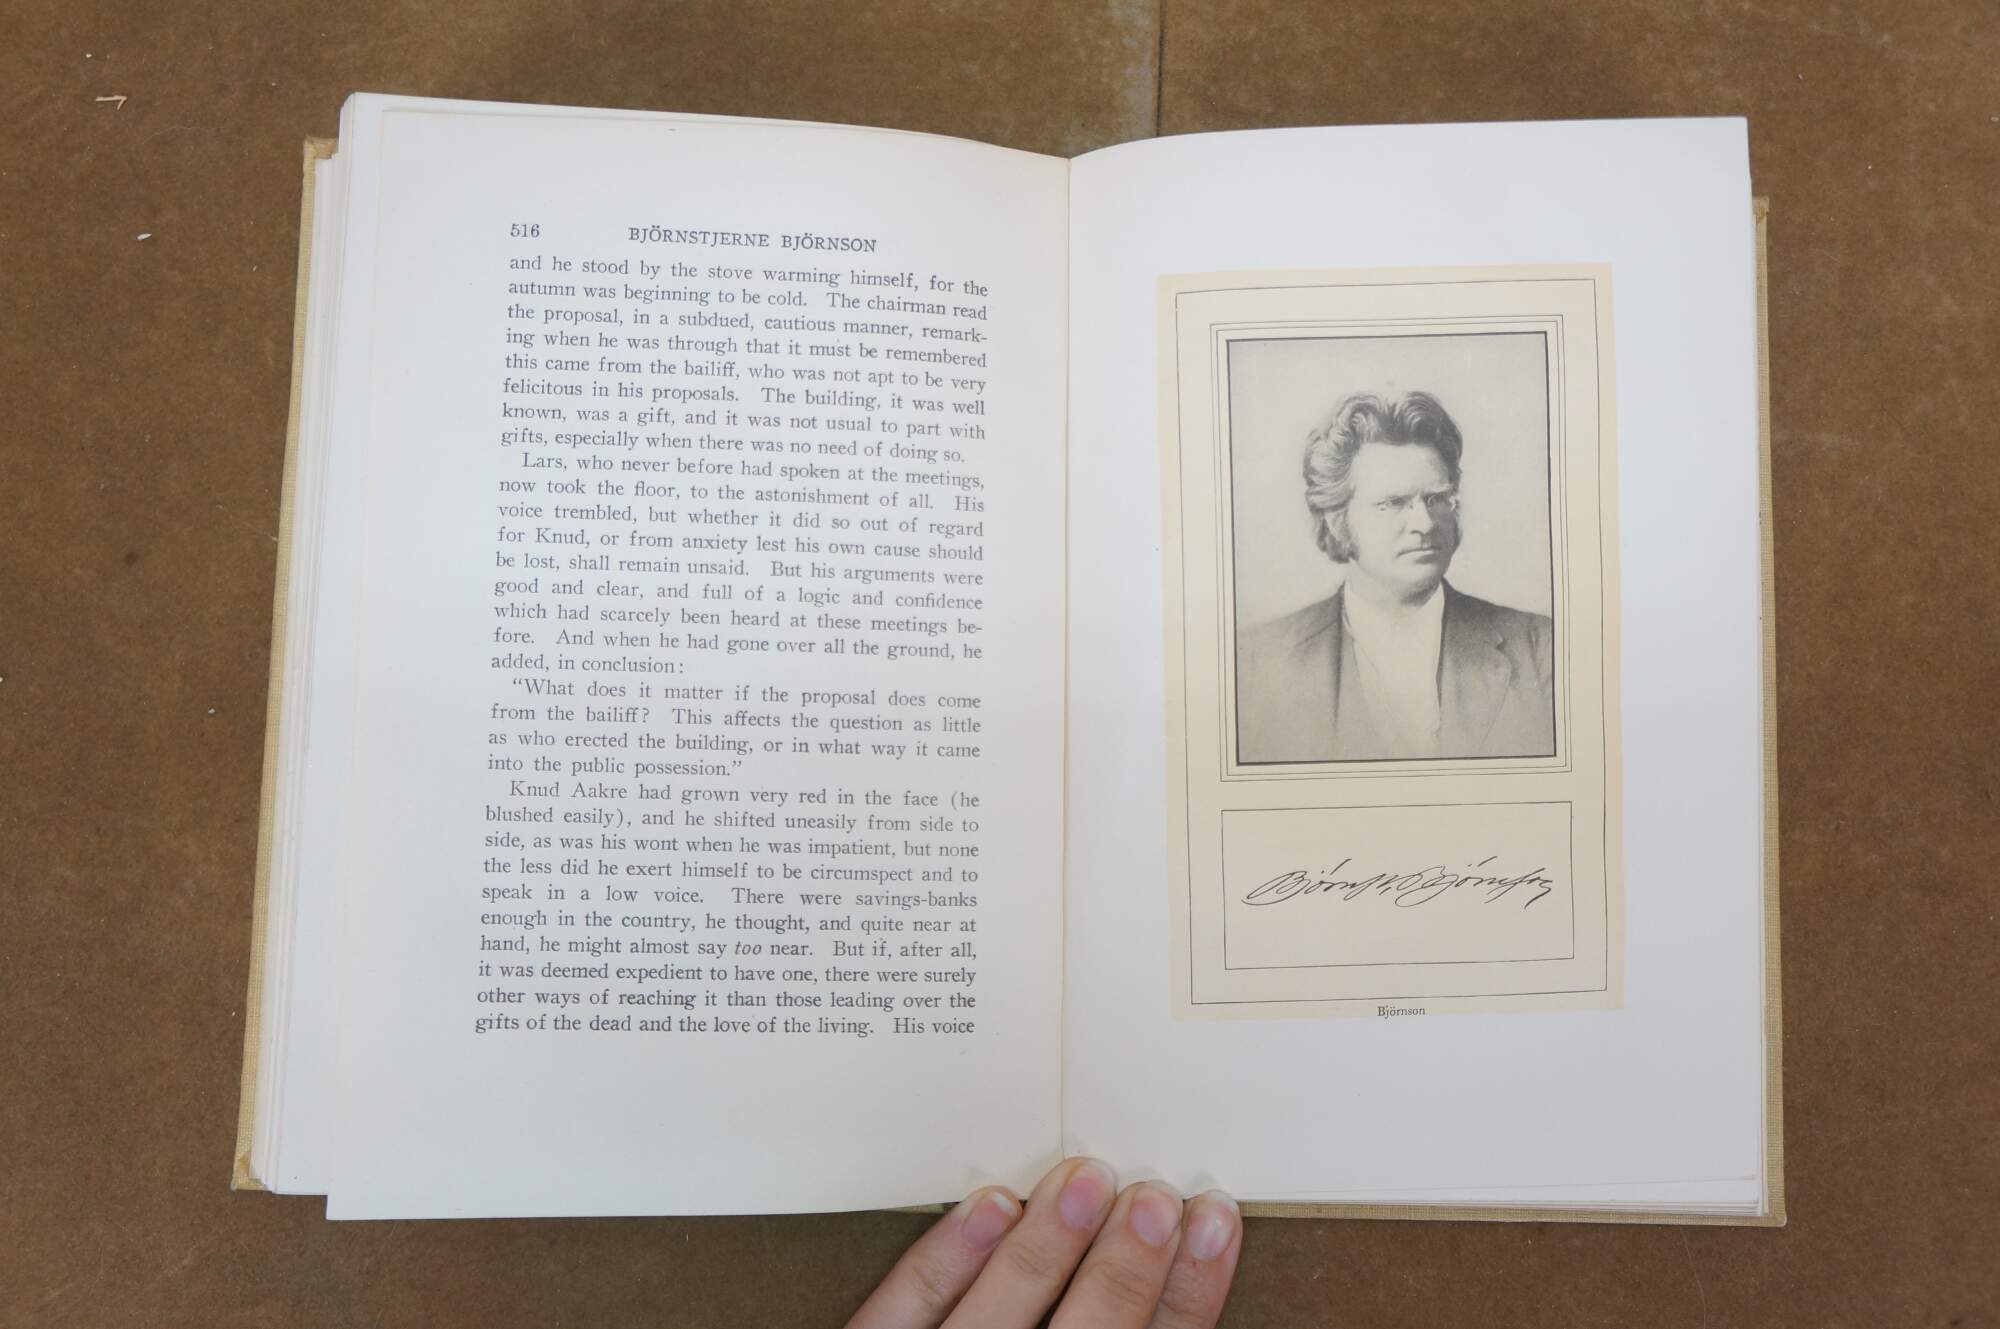 516 BJÖRNSTJERNE BJÖRNSON
and he stood by the stove warming himself, for the
autumn was beginning to be cold. The chairman read
the proposal, in a subdued, cautious manner, remark-
ing when he was through that it must be remembered
this came from the bailiff, who was not apt to be very
felicitous in his proposals. The building, it was well
known, was a gift, and it was not usual to part with
gifts, especially when there was no need of doing so.
Lars, who never before had spoken at the meetings,
now took the floor, to the astonishment of all. His
voice trembled, but whether it did so out of regard
for Knud, or from anxiety lest his own cause should
be lost, shall remain unsaid. But his arguments were
good and clear, and full of a logic and confidence
which had scarcely been heard at these meetings be-
fore. And when he had gone over all the ground, he
added, in conclusion:
“What does it matter if the proposal does come
from the bailiff? This affects the question as little
as who erected the building, or in what way it came
into the public possession.”
Knud Aakre had grown very red in the face (he
blushed easily), and he shifted uneasily from side to
side, as was his wont when he was impatient, but none
the less did he exert himself to be circumspect and to
speak in a low voice. There were savings-banks
enough in the country, he thought, and quite near at
hand, he might almost say too near. But if, after all,
it was deemed expedient to have one, there were surely
other ways of reaching it than those leading over the
gifts of the dead and the love of the living. His voice
Björnst. Björnson
Björnson